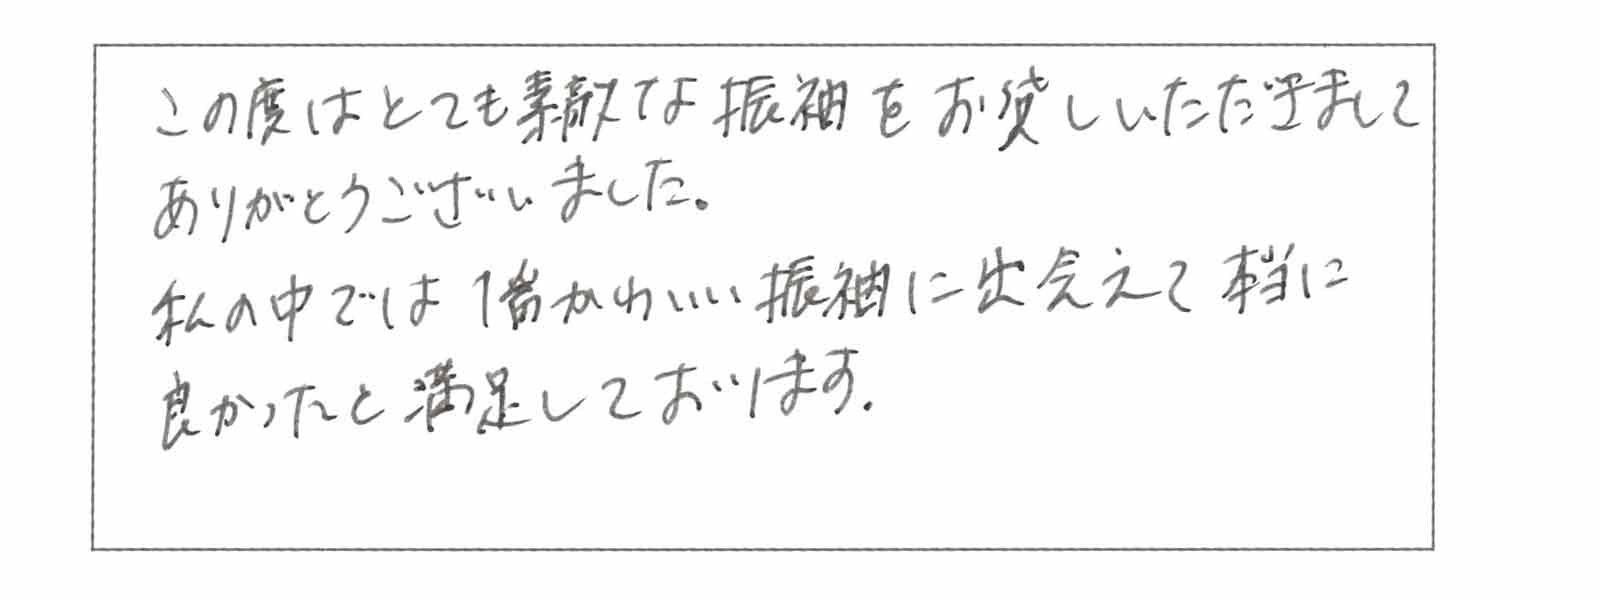 この度はとても素敵な振袖をお貸しいただきまして
ありがとうございました。
私の中では1番かわいい振袖に出会えて本当に
良かったと満足しております。